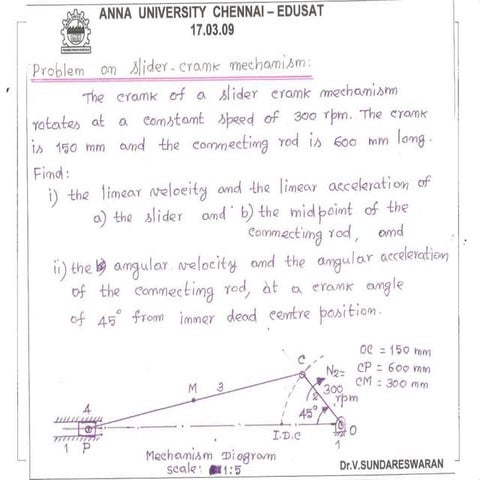 ANNA UNIVERSITY CHENNAI – EDUSAT
17.03.09
Problem on slider-crank mechanism:
The crank of a slider crank mechanism
rotates at a constant speed of 300 rpm. The crank
is 150 mm and the connecting rod is 600 mm long.
Find:
i) the linear velocity and the linear acceleration of
a) the slider and b) the midpoint of the
connecting rod, and
ii) the angular velocity and the angular acceleration
of the connecting rod, at a crank angle
of 45° from inner dead centre position.
C
OC = 150 mm
N2=
CP = 600 mm
M
3
300
CM = 300 mm
2
rpm
4
45°
I.D.C
O
1
P
1
Mechanism Diagram
scale: 1:5
Dr.V.SUNDARESWARAN